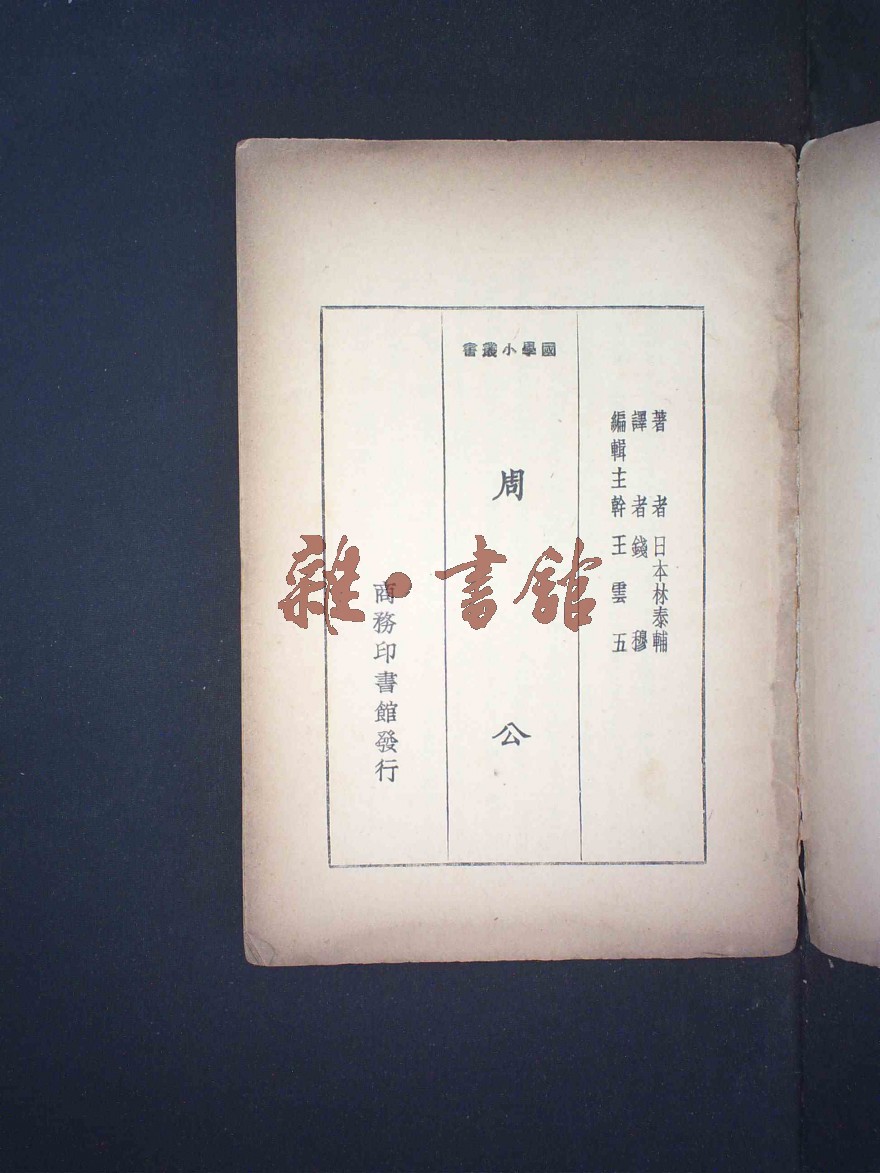 著者 日本林泰輔
譯者 錢穆
編輯主幹 王雲五
國學小叢書
周公
商務印書館發行
雜·書館